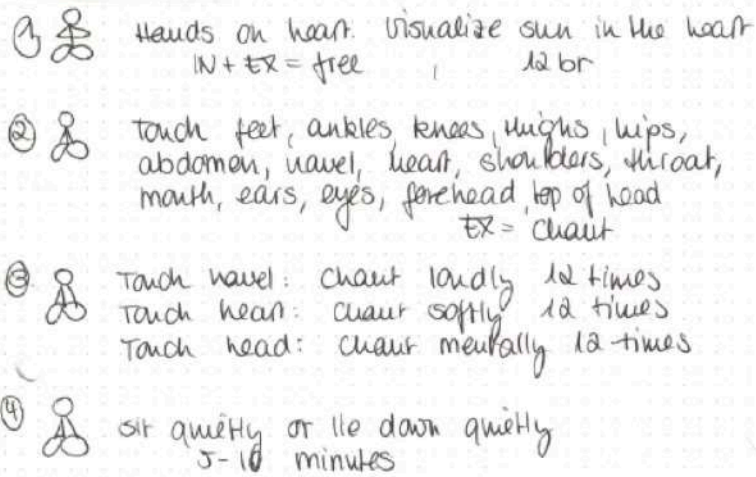 ① Hands on heart. Visualize sun in the heart
IN + EX = free 12 br
② Touch feet, ankles, knees, thighs, hips,
abdomen, navel, heart, shoulders, throat,
mouth, ears, eyes, forehead, top of head
EX = chant
③ Touch navel: chant loudly 12 times
Touch heart: chant softly 12 times
Touch head: chant mentally 12 times
④ Sit quietly or lie down quietly
5-10 minutes